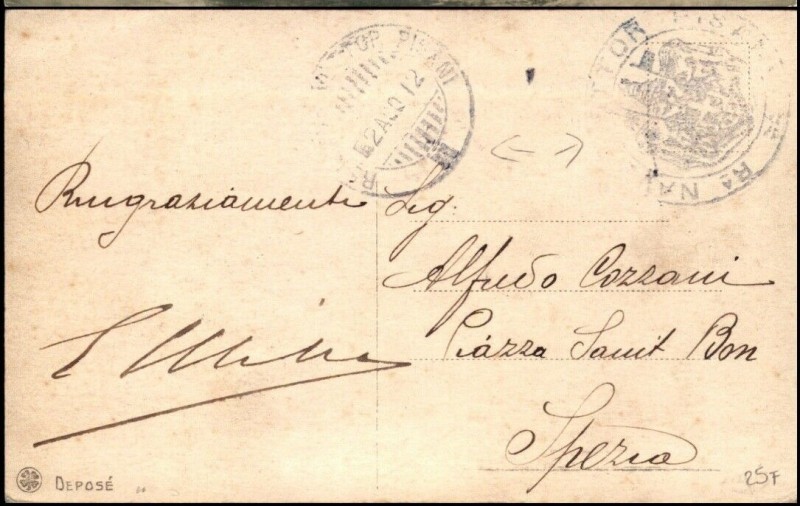 VETTOR PISANI
2 AGO 12
TTOR PISANI
Rª NA
Ringraziamenti
Sig.
Alfredo Cozzani
Piazza Saint Bon
Spezia
DEPOSÉ
25F